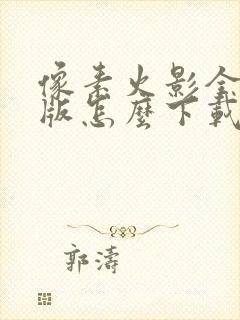 像素火影全
版怎麼下載
郭濤